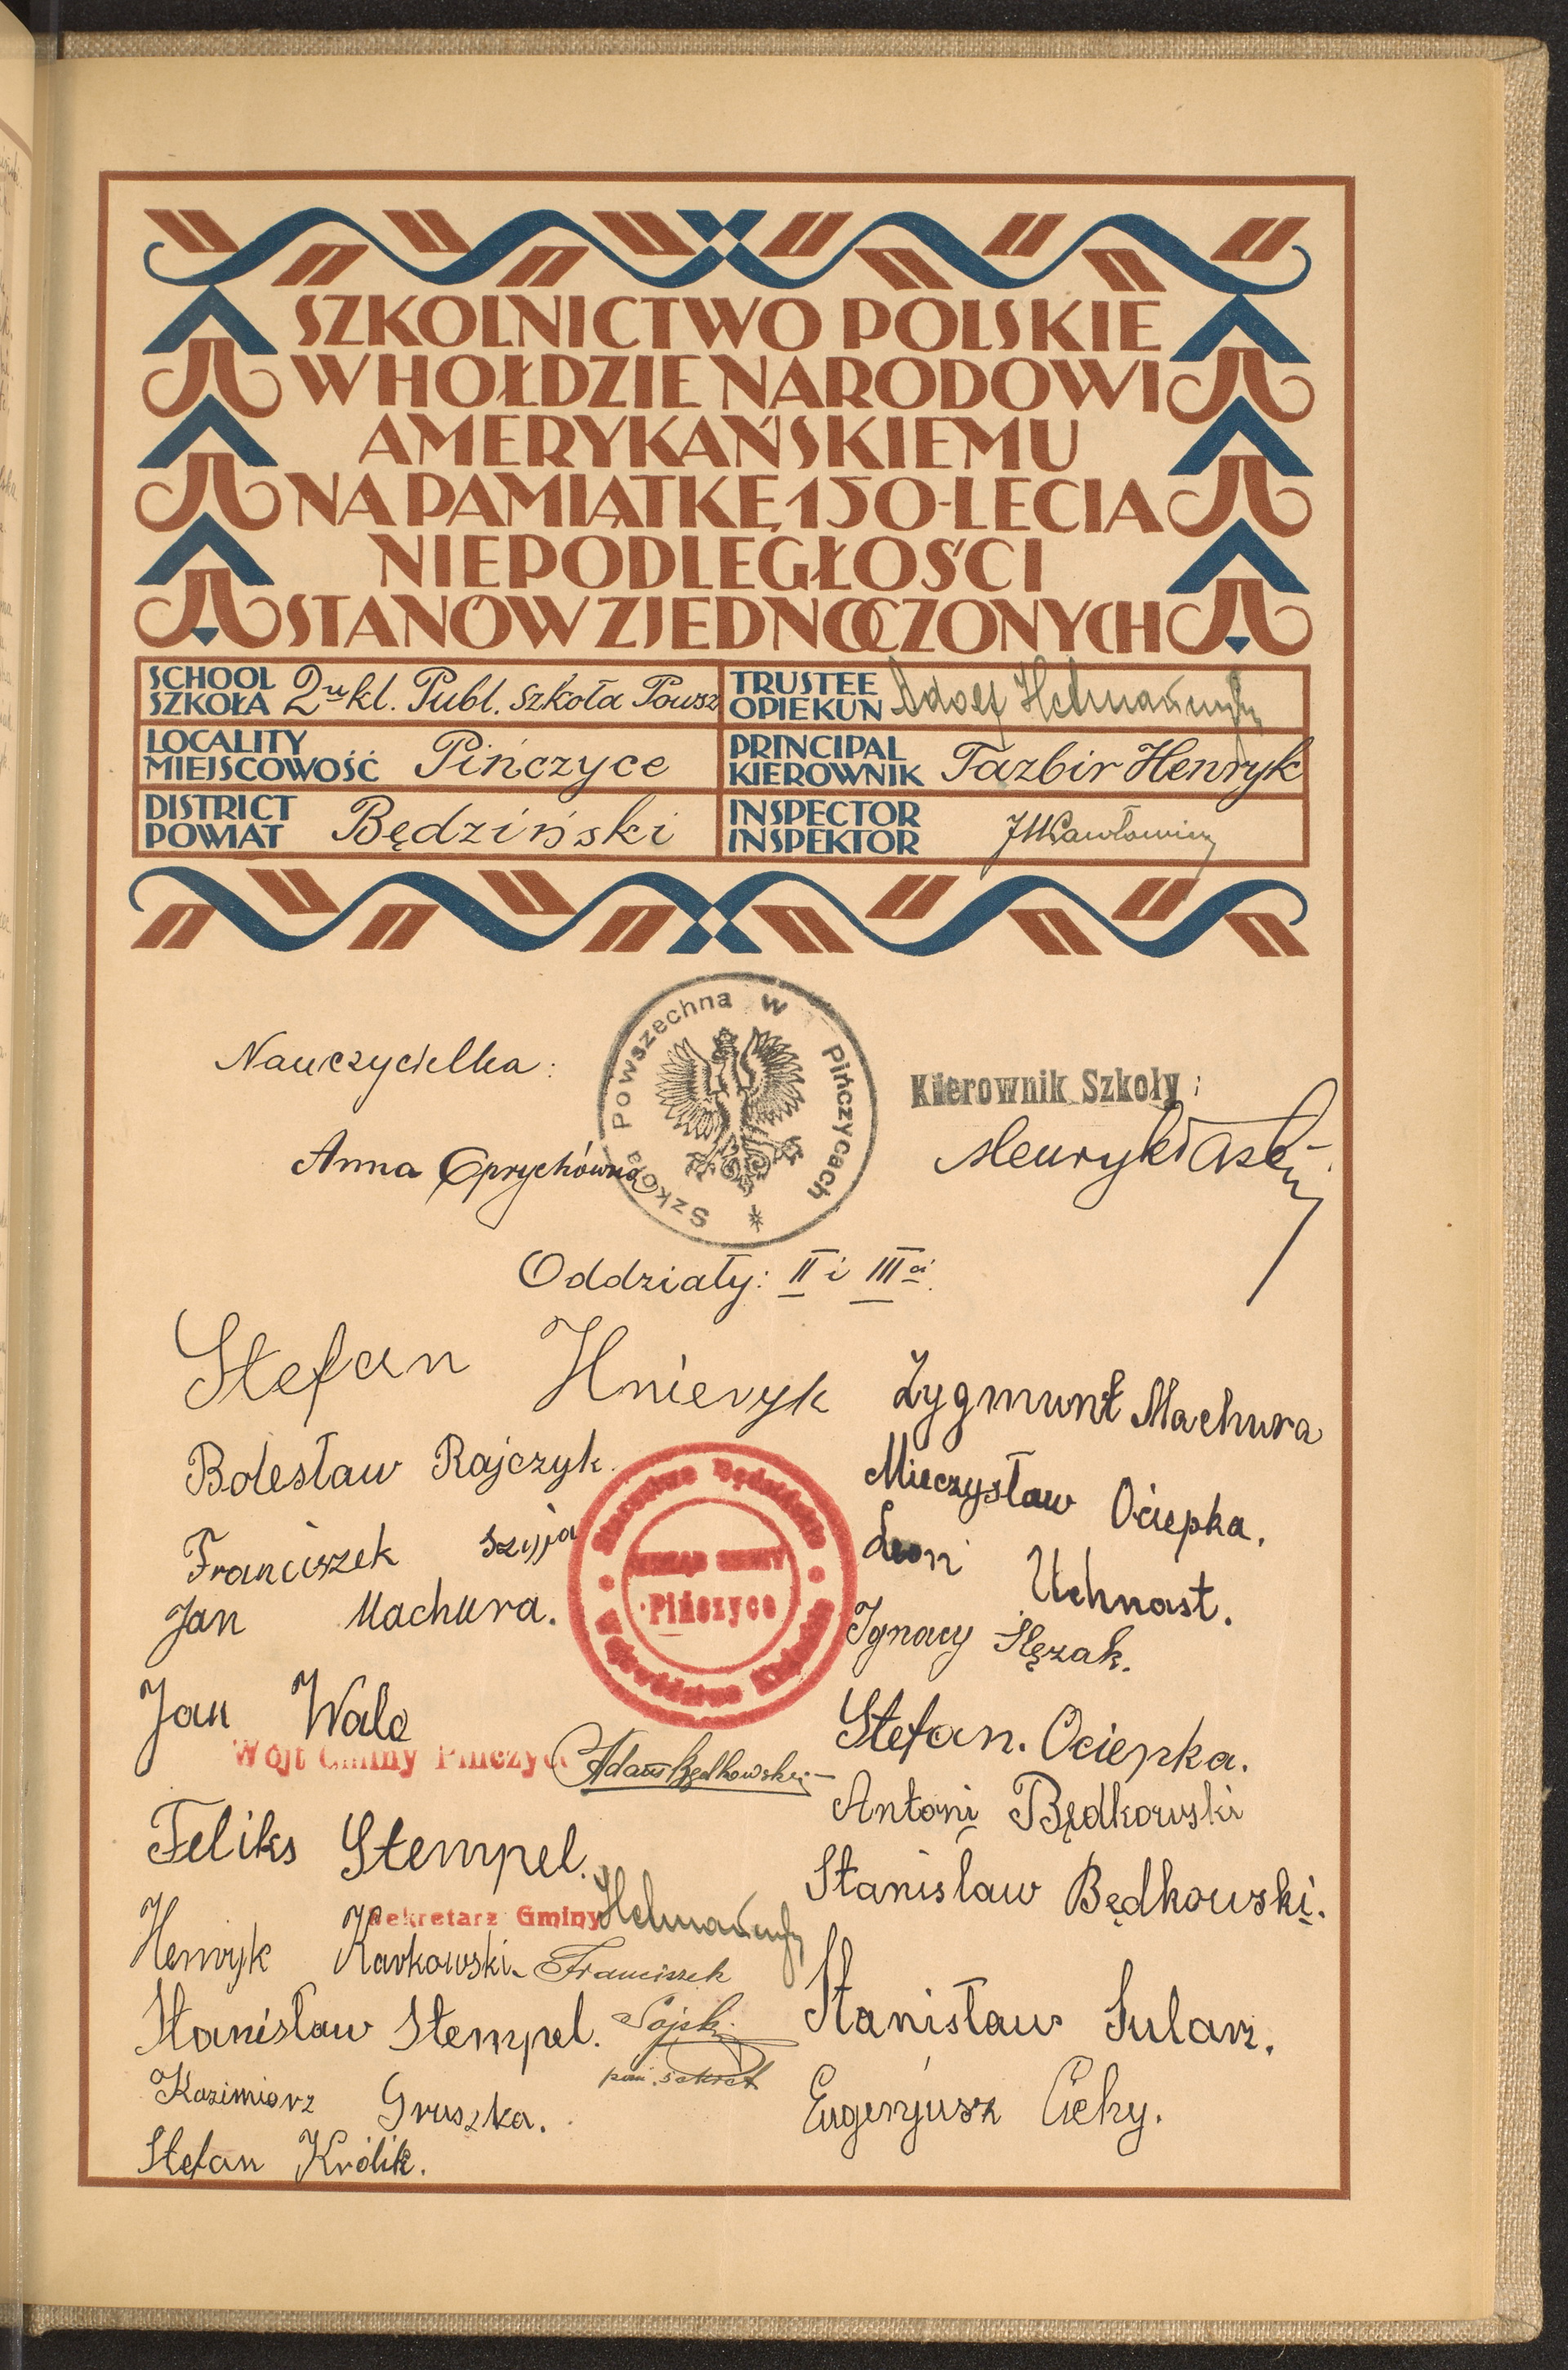 SZKOLNICTWO POLSKIE
W HOŁDZIE NARODOWI
AMERYKAŃSKIEMU
NA PAMIĄTKĘ 150-LECIA
NIEPODLEGŁOŚCI
STANÓW ZJEDNOCZONYCH
SCHOOL
SZKOŁA 2u kl. Publ. Szkoła Powsz
TRUSTEE
OPIEKUN Adolf
LOCALITY
MIEJSCOWOŚĆ Pińczyce
PRINCIPAL
KIEROWNIK Tazbir Henryk
DISTRICT
POWIAT Będziński
INSPECTOR
INSPEKTOR
Szkoła Powszechna w Pińczycach
Nauczycielka:
Kierownik Szkoły:
Anna
Henryk Tazbir
Oddziały: II i III ci
Stefan Hnieryk Zygmunt Machura
Bolesław Rajczyk. Mieczysław Ociepka.
Franciszek Szyja Leon Uchnast.
Jan Machura. Ignacy Ślęzak.
Pińczyce
Jan Wala Stefan. Ociepka.
Wójt Gminy Pińczyce Adam Będkowski
Antoni Będkowski
Feliks Stempel. Stanisław Będkowski.
Sekretarz Gminy
Henryk Karkowski
Franciszek
Sojski
pom. sekret
Stanisław Stempel. Stanisław Sularz.
Kazimierz Gruszka. Eugenjusz Cichy.
Stefan Królik.